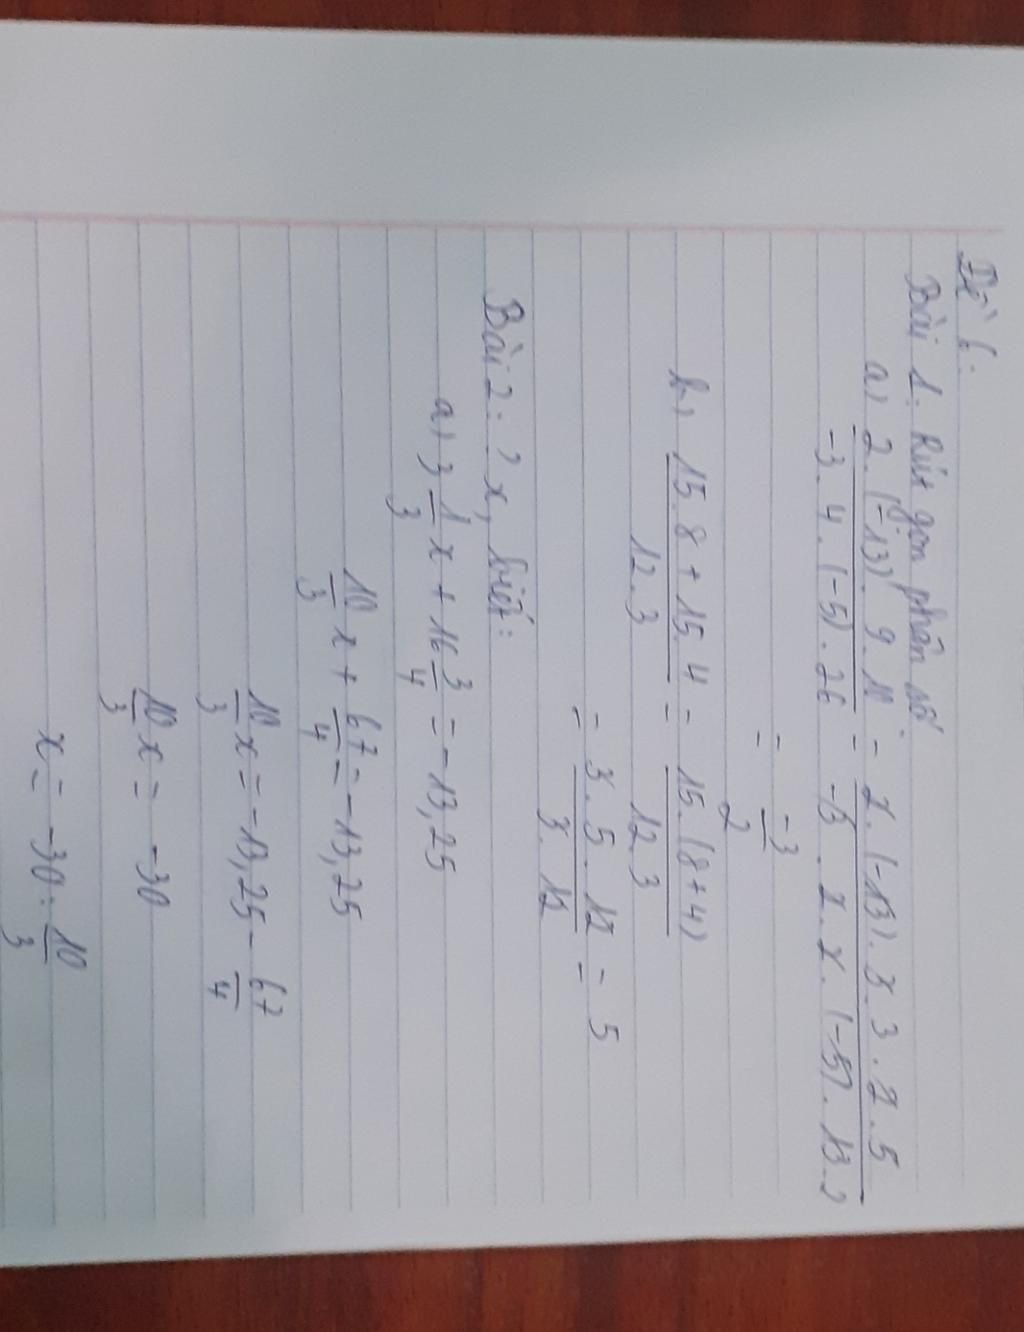 Đề 6.
Bài 1: Rút gọn phân số
a, 2.(-13).9.10 / -3.4.(-5).26 = 2.(-13).3.3.2.5 / -3.2.2.(-5).13.2
= -3/2
b, 15.8+15.4 / 12.3 = 15.(8+4) / 12.3
= 3.5.12 / 3.12 = 5
Bài 2: ? x, biết:
a, 3 1/3 x + 16 3/4 = -13,25
10/3 x + 67/4 = -13,25
10/3 x = -13,25 - 67/4
10/3 x = -30
x = -30 : 10/3